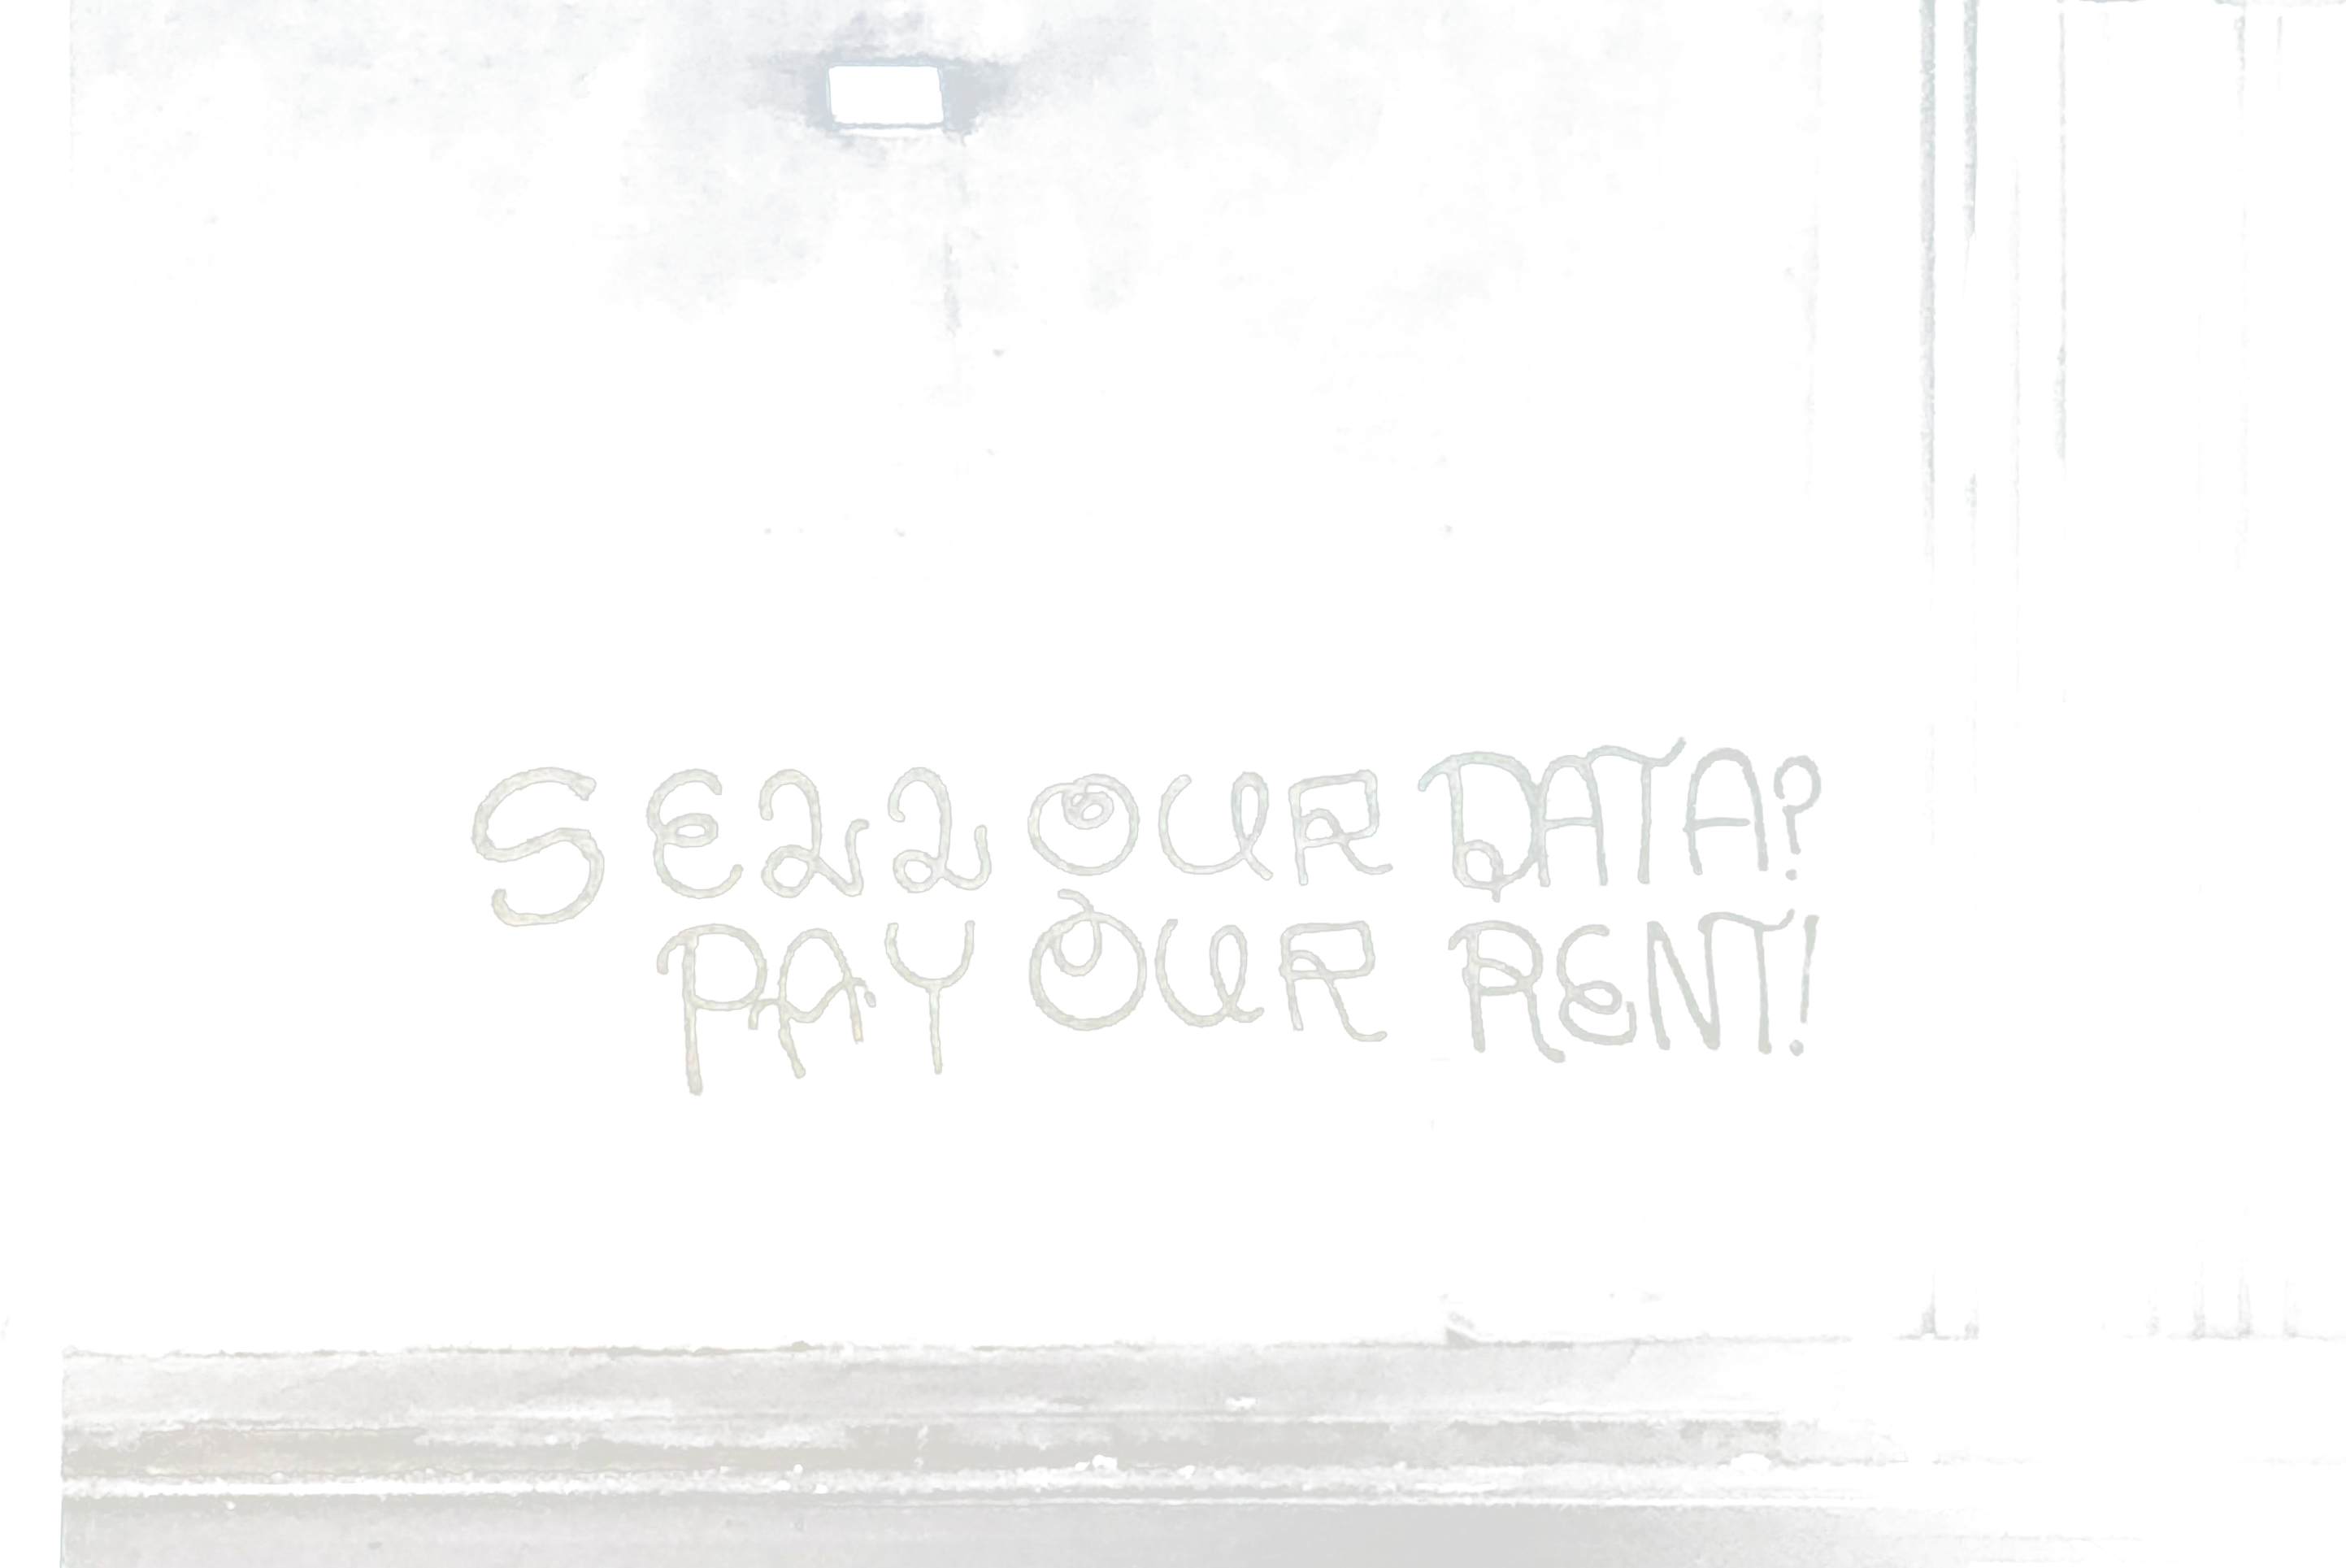 SELL OUR DATA?
PAY OUR RENT!